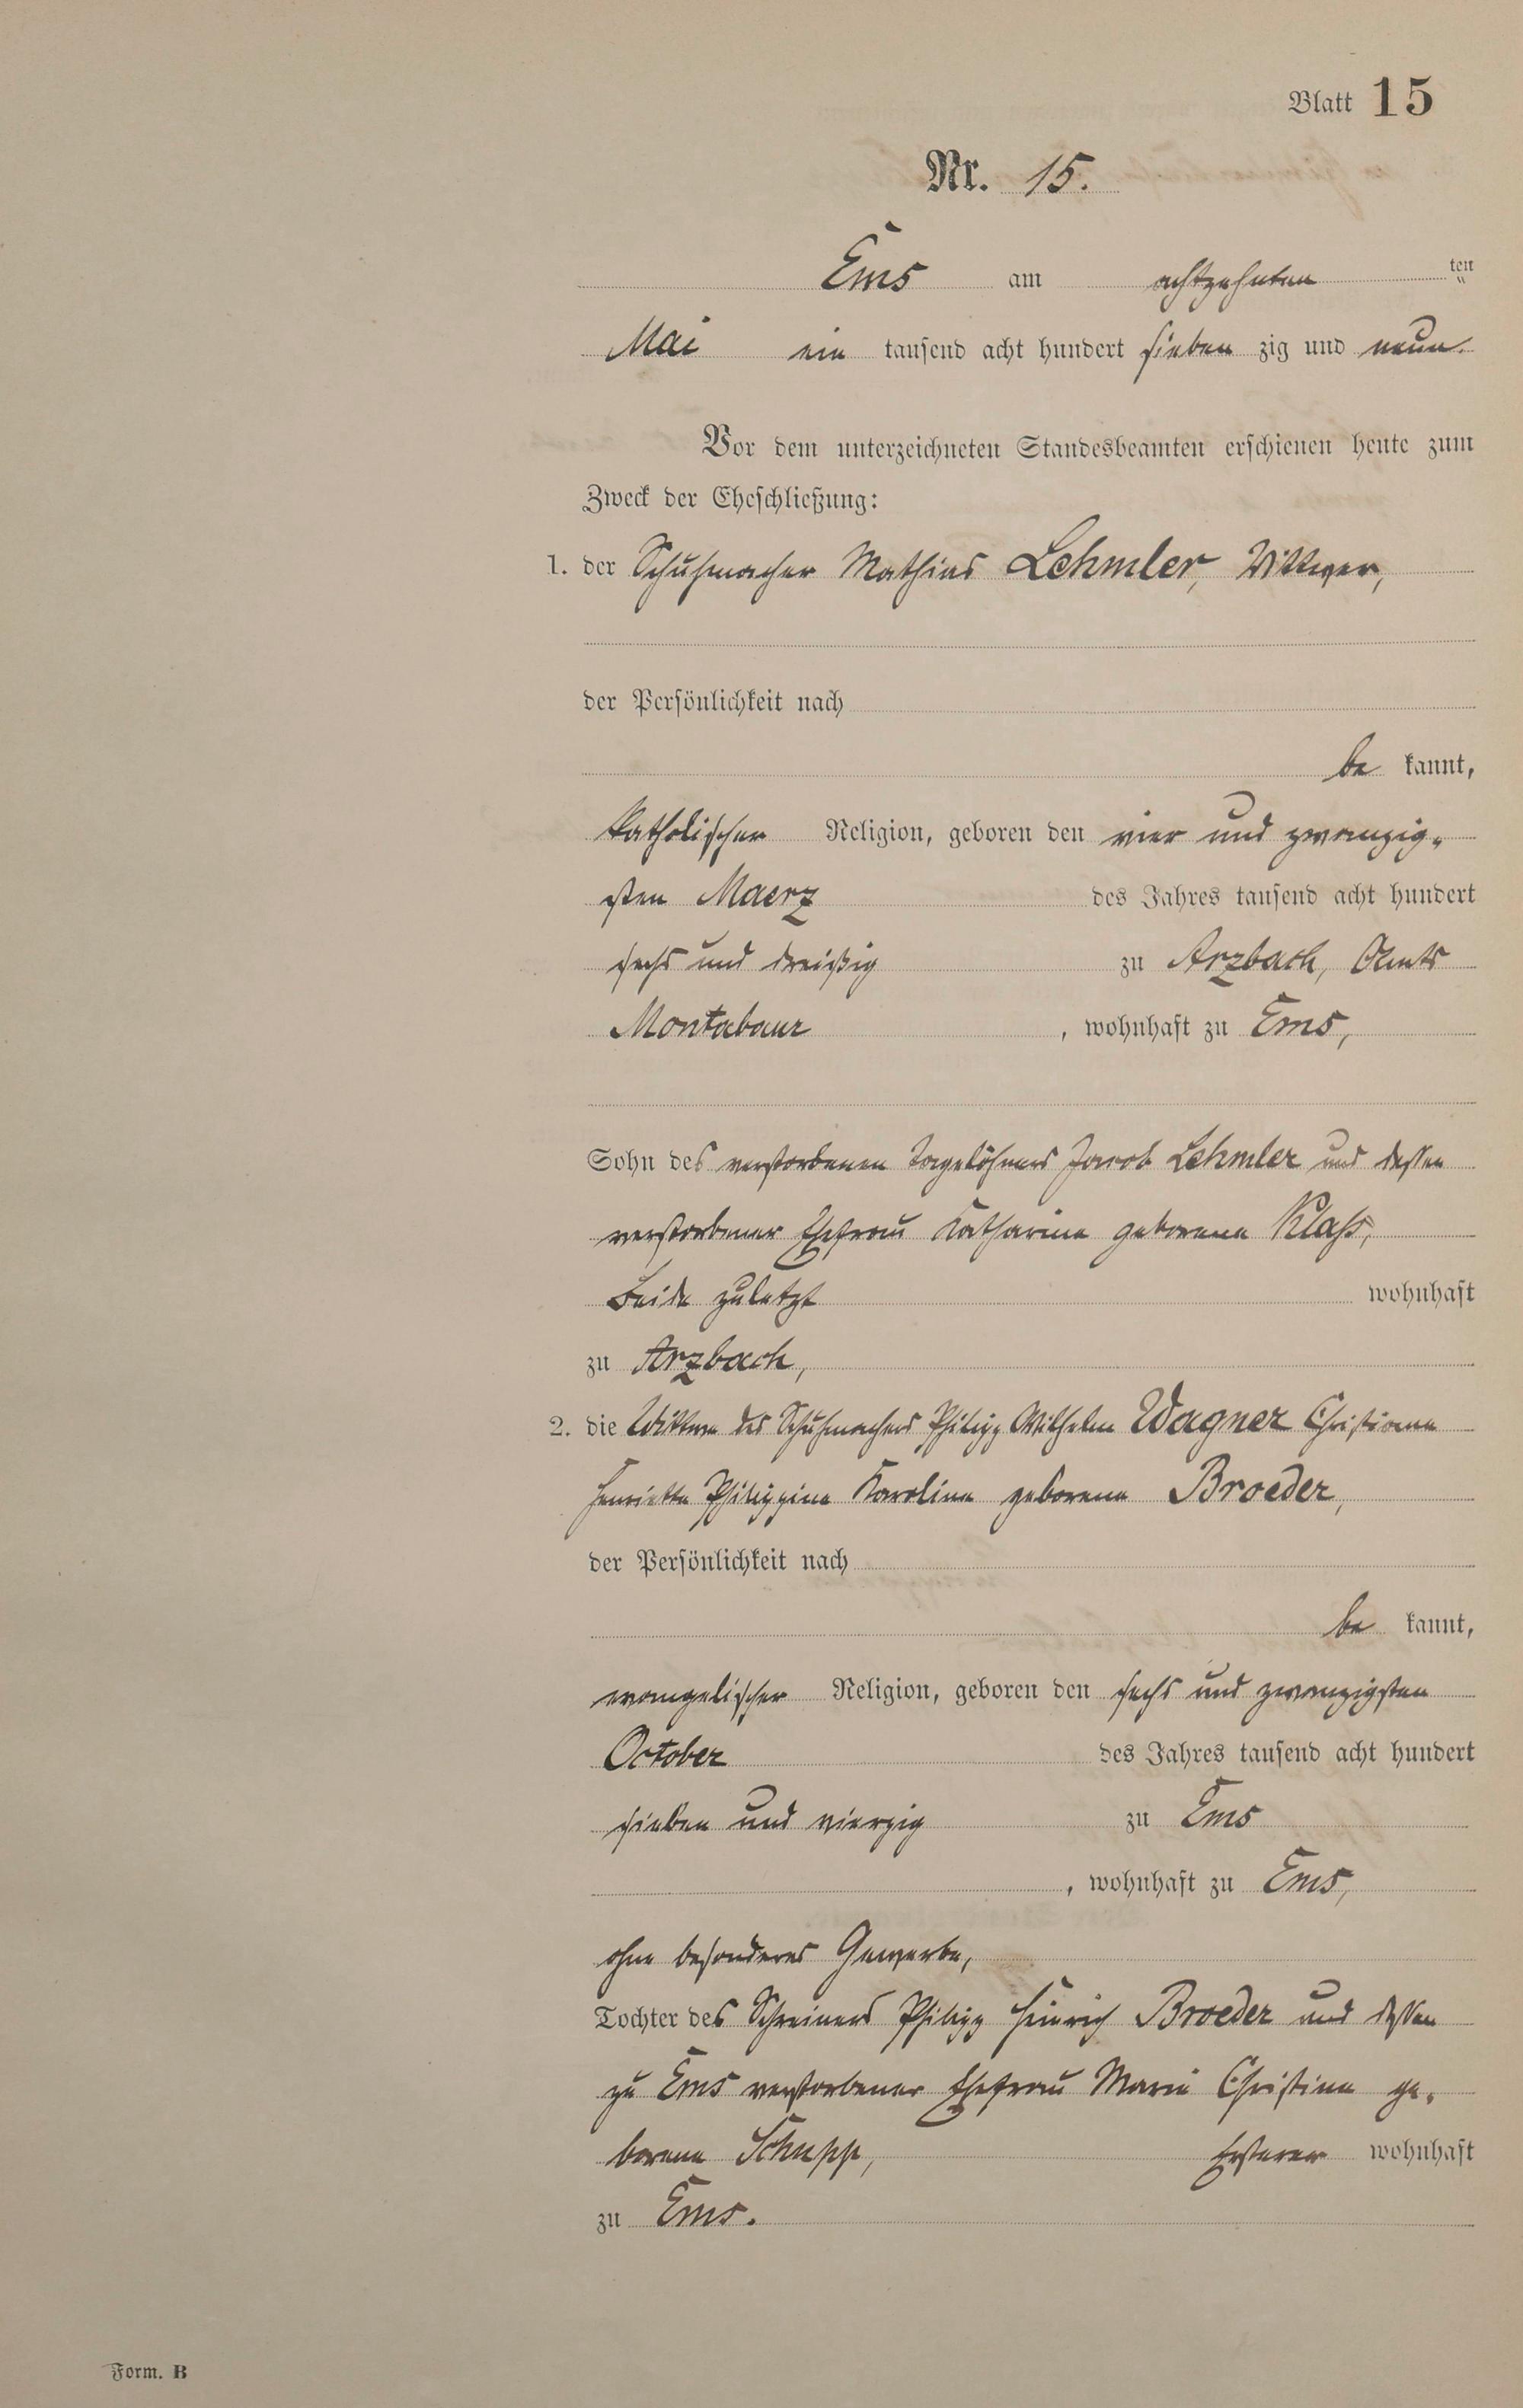 Blatt 15
Nr. 15.
Ems am achtzehnten ten
Mai ein tausend acht hundert sieben zig und neun.
Vor dem unterzeichneten Standesbeamten erschienen heute zum
Zweck der Eheschließung:
1. der Schuhmacher Mathias Lehmler, Wittwer,
der Persönlichkeit nach
be kannt,
katholischer Religion, geboren den vier und zwanzig-
sten Maerz des Jahres tausend acht hundert
sechs und dreißig zu Arzbach, Amts
Montabaur, wohnhaft zu Ems,
Sohn des verstorbenen Tagelöhners Jacob Lehmler und dessen
verstorbener Ehefrau Katharina geborene Klaß,
Beide zuletzt wohnhaft
zu Arzbach,
2. die Wittwe des Schuhmachers Philipp Wilhelm Wagner Christiane
Henriette Philippine Karoline geborene Broeder,
der Persönlichkeit nach
be kannt,
evangelischer Religion, geboren den sechs und zwanzigsten
October des Jahres tausend acht hundert
sieben und vierzig zu Ems
, wohnhaft zu Ems,
ohne besonderes Gewerbe,
Tochter des Schreiners Philipp Heinrich Broeder und dessen
zu Ems verstorbener Ehefrau Marie Christine ge-
borene Schupp, Ersterer wohnhaft
zu Ems.
Form. B